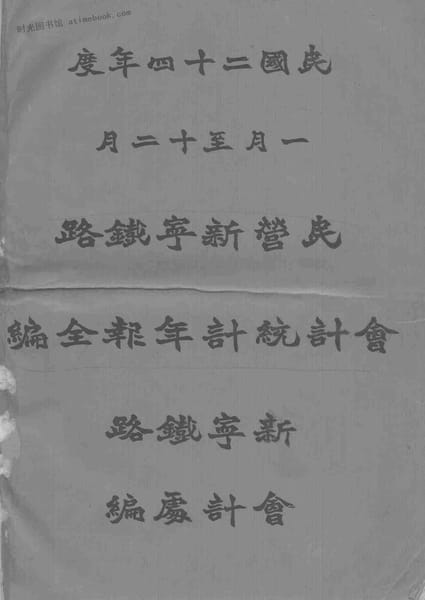 时光图书馆 atimebook.com
民國二十四年度
一月至十二月
民營新寧鐵路
會計統計年報全編
新寧鐵路
會計處編